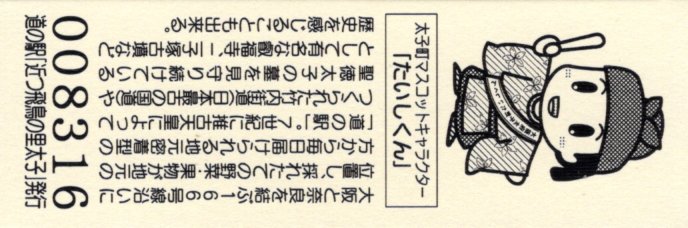 太子町マスコットキャラクター
「たいしくん」
大阪と奈良を結ぶ166号線沿いに
位置し、採れたての野菜・果物が地元の
方から毎日届けられる地元密着型の
「道の駅」。7世紀に推古天皇によって
つくられた竹内街道(日本最古の国道)や
聖徳太子の墓を見守り続けている
として有名な叡福寺、二子塚古墳など
歴史を感じることも出来る。
008316
道の駅「近つ飛鳥の里太子」発行